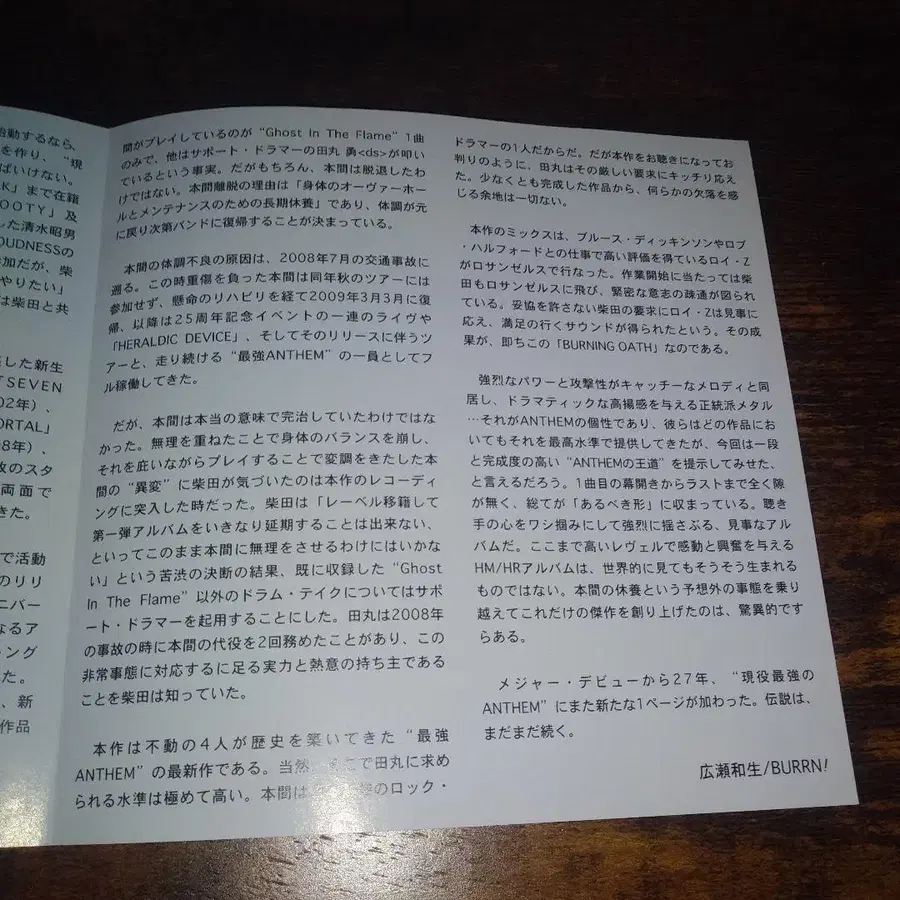 始動するなら、
を作り、“現
ばいけない。
K」まで在籍
OOTY」及
した清水昭男
OUDNESSの
参加だが、柴
やりたい」
は柴田と共
した新生
「SEVEN
02年)、
ORTAL」
8年)、
数のスタ
両面で
きた。
で活動
のリリ
ニバー
なるア
ング
た。
、新
作品
間がプレイしているのが“Ghost In The Flame”1曲
のみで、他はサポート・ドラマーの田丸 勇<ds>が叩い
ているという事実。だがもちろん、本間は脱退したわ
けではない。本間離脱の理由は「身体のオーヴァーホー
ルとメンテナンスのための長期休養」であり、体調が元
に戻り次第バンドに復帰することが決まっている。
本間の体調不良の原因は、2008年7月の交通事故に
遡る。この時重傷を負った本間は同年秋のツアーには
参加せず、懸命のリハビリを経て2009年3月3月に復
帰、以降は25周年記念イベントの一連のライヴや
「HERALDIC DEVICE」、そしてそのリリースに伴うツ
アーと、走り続ける“最強ANTHEM”の一員としてフ
ル稼働してきた。
だが、本間は本当の意味で完治していたわけではな
かった。無理を重ねたことで身体のバランスを崩し、
それを庇いながらプレイすることで変調をきたした本
間の“異変”に柴田が気づいたのは本作のレコーディ
ングに突入した時だった。柴田は「レーベル移籍して
第一弾アルバムをいきなり延期することは出来ない、
といってこのまま本間に無理をさせるわけにはいかな
い」という苦渋の決断の結果、既に収録した“Ghost
In The Flame”以外のドラム・テイクについてはサポ
ート・ドラマーを起用することにした。田丸は2008年
の事故の時に本間の代役を2回務めたことがあり、この
非常事態に対応するに足る実力と熱意の持ち主である
ことを柴田は知っていた。
本作は不動の4人が歴史を築いてきた“最強
ANTHEM”の最新作である。当然、ここで田丸に求め
られる水準は極めて高い。本間は のロック・
ドラマーの1人だからだ。だが本作をお聴きになってお
判りのように、田丸はその厳しい要求にキッチリ応え
た。少なくとも完成した作品から、何らかの欠落を感
じる余地は一切ない。
本作のミックスは、ブルース・ディッキンソンやロブ
・ハルフォードとの仕事で高い評価を得ているロイ・Z
がロサンゼルスで行なった。作業開始に当たっては柴
田もロサンゼルスに飛び、緊密な意志の疎通が図られ
ている。妥協を許さない柴田の要求にロイ・Zは見事に
応え、満足の行くサウンドが得られたという。その成
果が、即ちこの「BURNING OATH」なのである。
強烈なパワーと攻撃性がキャッチーなメロディと同
居し、ドラマティックな高揚感を与える正統派メタル
…それがANTHEMの個性であり、彼らはどの作品にお
いてもそれを最高水準で提供してきたが、今回は一段
と完成度の高い“ANTHEMの王道”を提示してみせた、
と言えるだろう。1曲目の幕開きからラストまで全く隙
が無く、総てが「あるべき形」に収まっている。聴き
手の心をワシ掴みにして強烈に揺さぶる、見事なアル
バムだ。ここまで高いレヴェルで感動と興奮を与える
HM/HRアルバムは、世界的に見てもそうそう生まれる
ものではない。本間の休養という予想外の事態を乗り
越えてこれだけの傑作を創り上げたのは、驚異的です
らある。
メジャー・デビューから27年、“現役最強の
ANTHEM”にまた新たな1ページが加わった。伝説は、
まだまだ続く。
広瀬和生/BURRN!